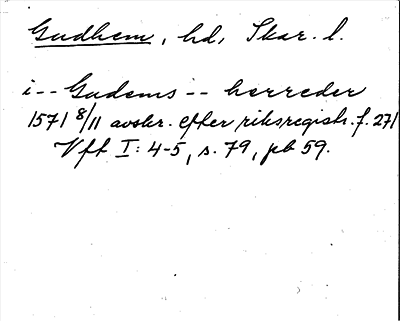 Gudhem, hd, Skar. l.
i -- Gudems -- herreder
1571 8/11 avskr. efter riksregistr. f. 271
Vft I: 4-5, s. 79, pb 59.